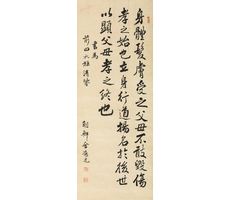 身體髮膚受之父母不敢毀傷
孝之始也立身行道揚名於後世
以顯父母孝之終也
書為